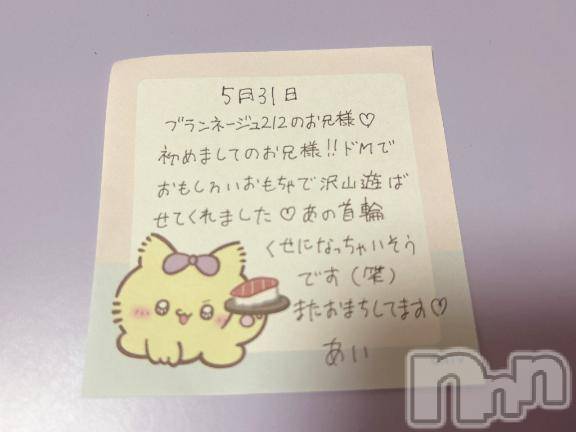 5月31日
ブランネージュ212のお兄様♡
初めましてのお兄様!!ドMで
おもしろいおもちゃで沢山遊ば
せてくれました♡あの首輪
くせになっちゃいそう
です(笑)
またおまちしてます♡
あい
nnn